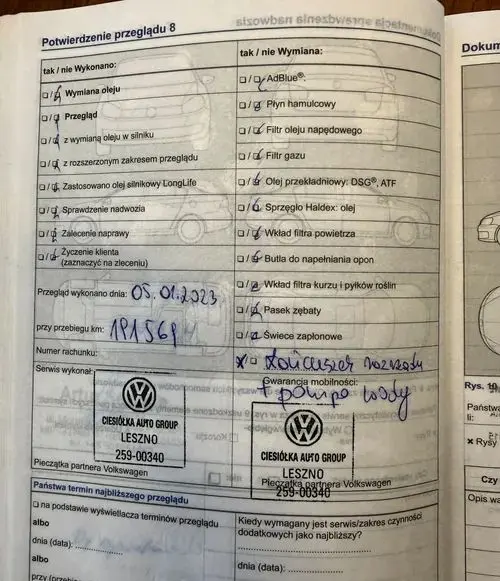 Potwierdzenie przeglądu 8
Dokumentacja sprawdzenia nadwozia
tak / nie Wykonano:
□ / □ Wymiana oleju
□ / □ Przegląd
□ / □ z wymianą oleju w silniku
□ / □ z rozszerzonym zakresem przeglądu
□ / □ Zastosowano olej silnikowy LongLife
□ / □ Sprawdzenie nadwozia
□ / □ Zalecenie naprawy
□ / □ Życzenie klienta
(zaznaczyć na zleceniu)
Przegląd wykonano dnia: 05.01.2023
przy przebiegu km:
Numer rachunku:
Serwis wykonał:
CIESIÓŁKA AUTO GROUP
LESZNO
259-00340
Pieczątka partnera Volkswagen
tak / nie Wymiana:
□ / □ AdBlue®:
□ / □ Płyn hamulcowy
□ / □ Filtr oleju napędowego
□ / □ Filtr gazu
□ / □ Olej przekładniowy: DSG®, ATF
□ / □ Sprzęgło Haldex: olej
□ / □ Wkład filtra powietrza
□ / □ Butla do napełniania opon
□ / □ Wkład filtra kurzu i pyłków roślin
□ / □ Pasek zębaty
□ / □ Świece zapłonowe
x / □ Łańcuszek rozrządu
Gwarancja mobilności:
+ pompa wody
CIESIÓŁKA AUTO GROUP
LESZNO
259-00340
Pieczątka partnera Volkswagen
Państwa termin najbliższego przeglądu
□ na podstawie wyświetlacza terminów przeglądu
albo
dnia (data):
albo
przy (przebieg
Kiedy wymagany jest serwis/zakres czynności
dodatkowych jako najbliższy?
dnia (data):
Dokum
Rys. 10
Państwa
li:
× Rysy
Czy
Opis wa